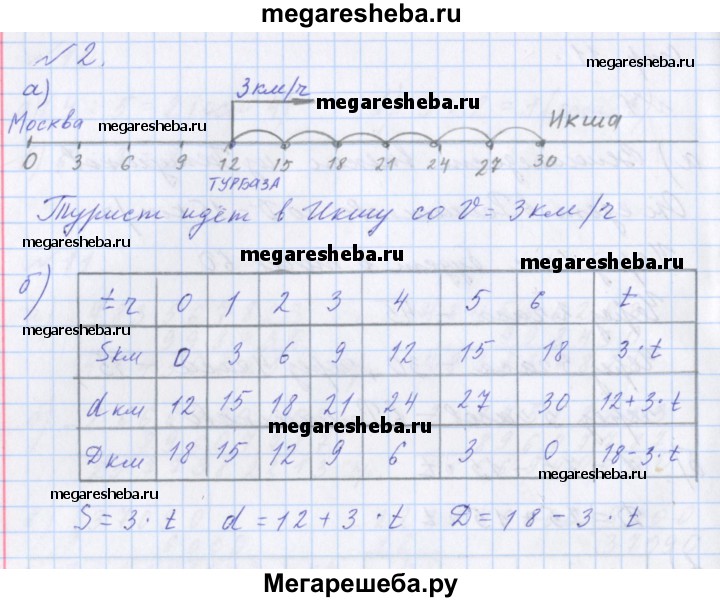 megaresheba.ru
№ 2.
megaresheba.ru
а)
3км/ч
megaresheba.ru
Москва
megaresheba.ru
Икша
0 3 6 9 12 15 18 21 24 27 30
ТУРБАЗА
Турист идёт в Икшу со v = 3км/ч
megaresheba.ru
б)
t ч 0 1 2 3 4 5 6 t
megaresheba.ru
S км 0 3 6 9 12 15 18 3·t
d км 12 15 18 21 24 27 30 12+3·t
megaresheba.ru
D км 18 15 12 9 6 3 0 18-3·t
megaresheba.ru
megaresheba.ru
S = 3·t d = 12 + 3·t D = 18 - 3·t
Мегарешеба.ру